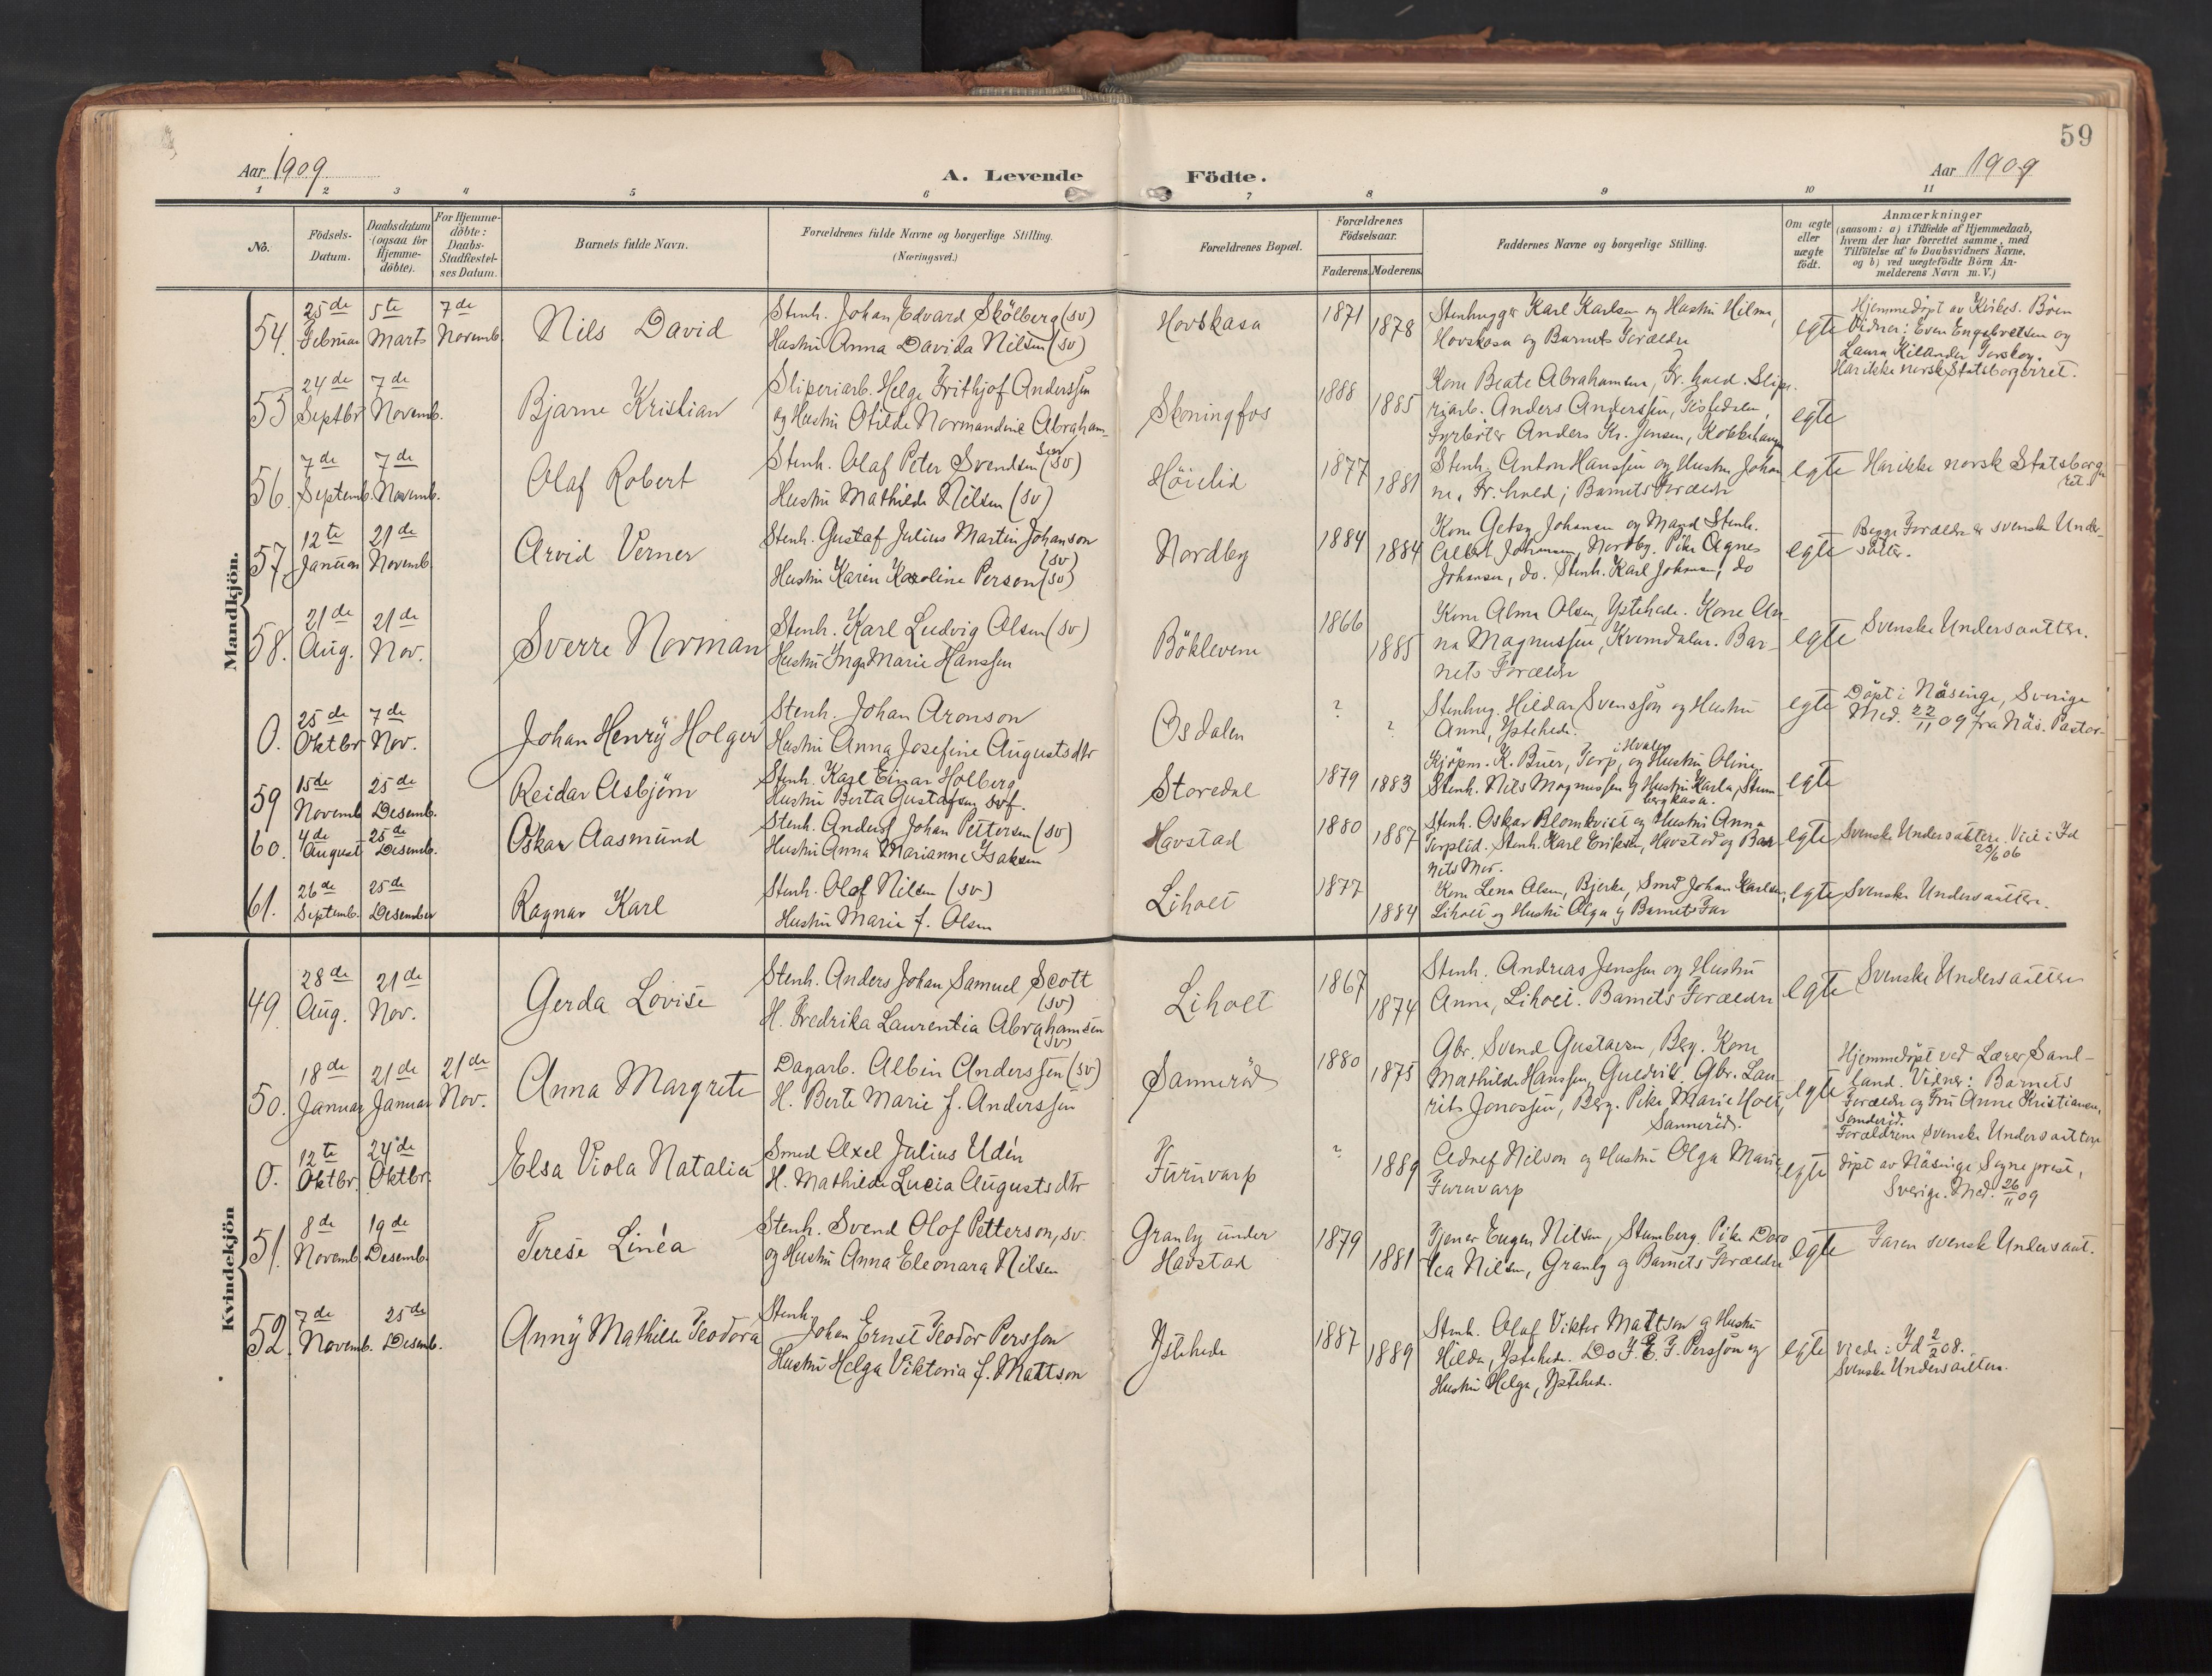 59
Aar 1909
A. Levende Födte.
Aar 1909
1 2 3 4 5 6 7 8 9 10 11
No.
Födsels-Datum.
Daabsdatum (ogsaa for Hjemme-döbte).
For Hjemme-döbte: Daabs-Stadfæstel-ses Datum.
Barnets fulde Navn.
Forældrenes fulde Navne og borgerlige Stilling. (Næringsvei.)
Forældrenes Bopæl.
Forældrenes Födselsaar.
Faderens. Moderens.
Faddernes Navne og borgerlige Stilling.
Om ægte eller uægte födt.
Anmærkninger
(saasom: a) i Tilfælde af Hjemmedaab,
hvem der har forrettet samme, med
Tilföielse af to Daabsvidners Navne,
og b) ved uægtefödte Börn An-
melderens Navn m. V.)
Mandkjön.
54. 25de Februar 5te Marts 7de Novemb.
Nils David
Stenh. Johan Edvard Skölberg (sv)
Hustru Anna Davida Nilsen (sv)
Hovskasa
1871 1878
Stenhugger Karl Karlsen og Hustru Hilma,
Hovskasa og Barnets Forældre
egte
Hjemmedöpt av Kirkes. Böen
Vidner: Even Engebretsen og
Laura Kilander Torskog.
Har ikke norsk Statsborgerret.
55 24de Septbr 7de Novemb.
Bjarne Kristian
Sliperiarb. Helge Frithjof Anderssen
og Hustru Otilde Normandine Abraham-
sen
Skoningfos
1888 1885
Kone Beate Abrahamsen, Fr.hald. Slipe-
riarb. Anders Anderssen, Tistedalen,
Fyrböter Anders Kr. Jensen,
egte
56. 7de Septemb. 7de Novemb.
Olaf Robert
Stenh. Olaf Peter Svendsen (sv)
Hustru Mathilde Nilsen (sv)
Höielid
1877 1881
Stenh. Anton Hanssen og Hustru Johan
ne, Fr.hald; Barnets Forældre
egte
Har ikke norsk Statsborger
ret.
57 12te Januar 21de Novemb.
Arvid Verner
Stenh. Gustaf Julius Martin Johanson
(sv)
Hustru Karin Karoline Person (sv)
Nordby
1884 1884
Kone Betsy Johansen og Mand Stenh.
Albert Johansen, Nordby. Pike Agnes
Johansen, do. Stenh. Karl Johansen, do
egte
Begge Forældre er svenske Under-
saatter.
58. 21de Aug. 21de Nov.
Sverre Norman
Stenh. Karl Ludvig Olsen (sv)
Hustru Inga Marie Hanssen
Böklevene
1866 1885
Kone Alma Olsen, Ystehede. Kone An-
na Magnussen, Kvemdalen. Bar-
nets Forældre
egte
Svenske Undersaatter.
0. 25de Oktbr 7de Nov.
Johan Henrÿ Holger
Stenh. Johan Aronson
Hustru Anna Josefine Augustsdtr
Osdalen
? ?
Stenhug. Hildar Svensson og Hustru
Anna, Ystehede.
egte
Döpt i Näsinge, Sverige
Med. 22/11 09 fra Näs. Pastor.
59 15de Novemb 25de Desemb.
Reidar Asbjörn
Stenh. Karl Einar Holberg
Hustru Berta Gustafsen svf.
Storedal
1879 1883
Kjöpm. K. Buer, Torp, i Hvaler og Hustru Oline.
Stenh. Nils Magnussen og Hustru Karla, Stum
bergkasa.
egte
60. 4de August 25de Desemb.
Oskar Aasmund
Stenh. Anders Johan Pettersen (sv)
Hustru Anna Marianne Isaksen
Havstad
1880 1887
Stenh. Oskar Blomkvist og Hustru Anna
Torplid. Stenh. Karl Eriksen, Havstad og Bar
nets Mor.
egte
Svenske Undersaatter. Viet i Id
23/6 06
61. 26de Septemb. 25de Desember
Ragnar Karl
Stenh. Olof Nilsen (sv)
Hustru Marie f. Olsen
Liholt
1877 1884
Kone Lena Olsen, Bjerke, Smed Johan Karlsen,
Liholt og Hustru Olga og Barnets Far
egte
Svenske Undersaatter.
Kvindekjön
49 28de Aug. 21de Nov.
Gerda Lovise
Stenh. Anders Johan Samuel Scott
(sv)
H. Fredrika Laurentia Abrahamsen
(sv)
Liholt
1867 1874
Stenh. Andreas Jenssen og Hustru
Anna, Liholt. Barnets Forældre
egte
Svenske Undersaatter
50. 18de Januar 21de Januar 21de Nov.
Anna Margrete
Dagarb. Albin Anderssen (sv)
H. Berte Marie f. Anderssen
Sanneröd
1880 1875
Gbr. Svend Gustavsen, Berg. Kone
Mathilde Hanssen, Guldvik. Gbr. Lau
rits Jonassen, Berg. Pike Marie Holt,
Sanneröd.
egte
Hjemmedöpt ved Lærer Sand-
land. Vidner: Barnets
Forældre og Fru Anne Kristiansen,
Sanderöd.
Forældrene Svenske Undersaatter
0. 12te Oktbr. 24de Oktbr.
Elsa Viola Natalia
Smed Axel Julius Udén
H. Mathilda Lucia Augustsdtr
Furuvarp
? 1889
Adolf Nilson og Hustru Olga Marie
Furuvarp
egte
döpt av Näsinge Sogneprest,
Sverige. Med. 26/11 09
51. 8de Novemb. 19de Desemb.
Terese Linéa
Stenh. Svend Olof Petterson, sv.
og Hustru Anna Eleonara Nilsen
Granly under
Havstad
1879 1881
Tjener Eugen Nilsen, Stumberg. Pike Doro
tea Nilsen, Granly og Barnets Forældre
egte
Faren svensk Undersaat.
52. 7de Novemb. 25de Desemb.
Annÿ Mathilde Teodora
Stenh.
Johan Ernst Teodor Persson
Hustru Helga Viktoria f. Mattson
Ystehede
1887 1889
Stenh. Olaf Viktor Mattson og Hustru
Hilda, Ystehede. Do J. E. T. Persson og
Hustru Helga, Ystehede.
egte
viede i Id 2/2 08.
Svenske Undersaatter.